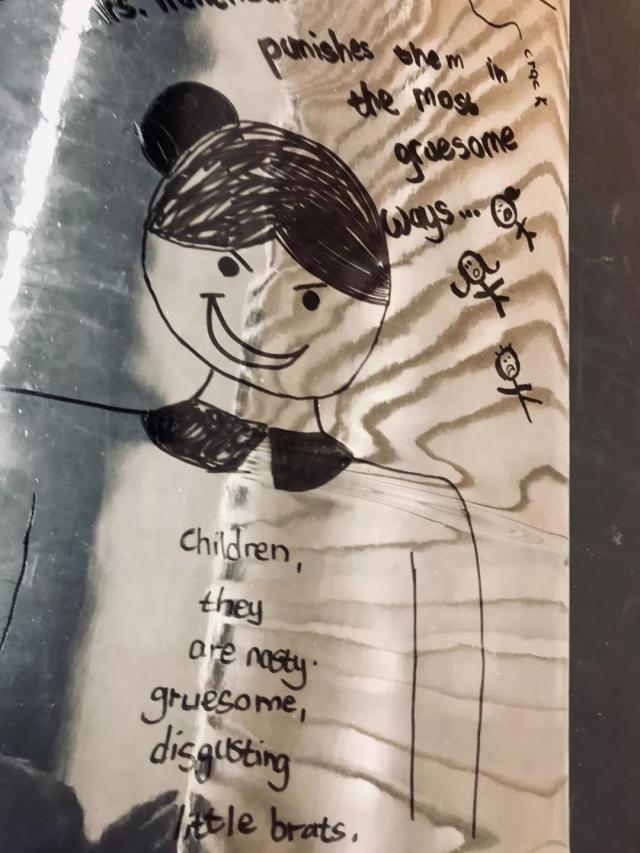 punishes them in
the most
gruesome
ways...
crack
children,
they
are nasty.
gruesome,
disgusting
little brats.